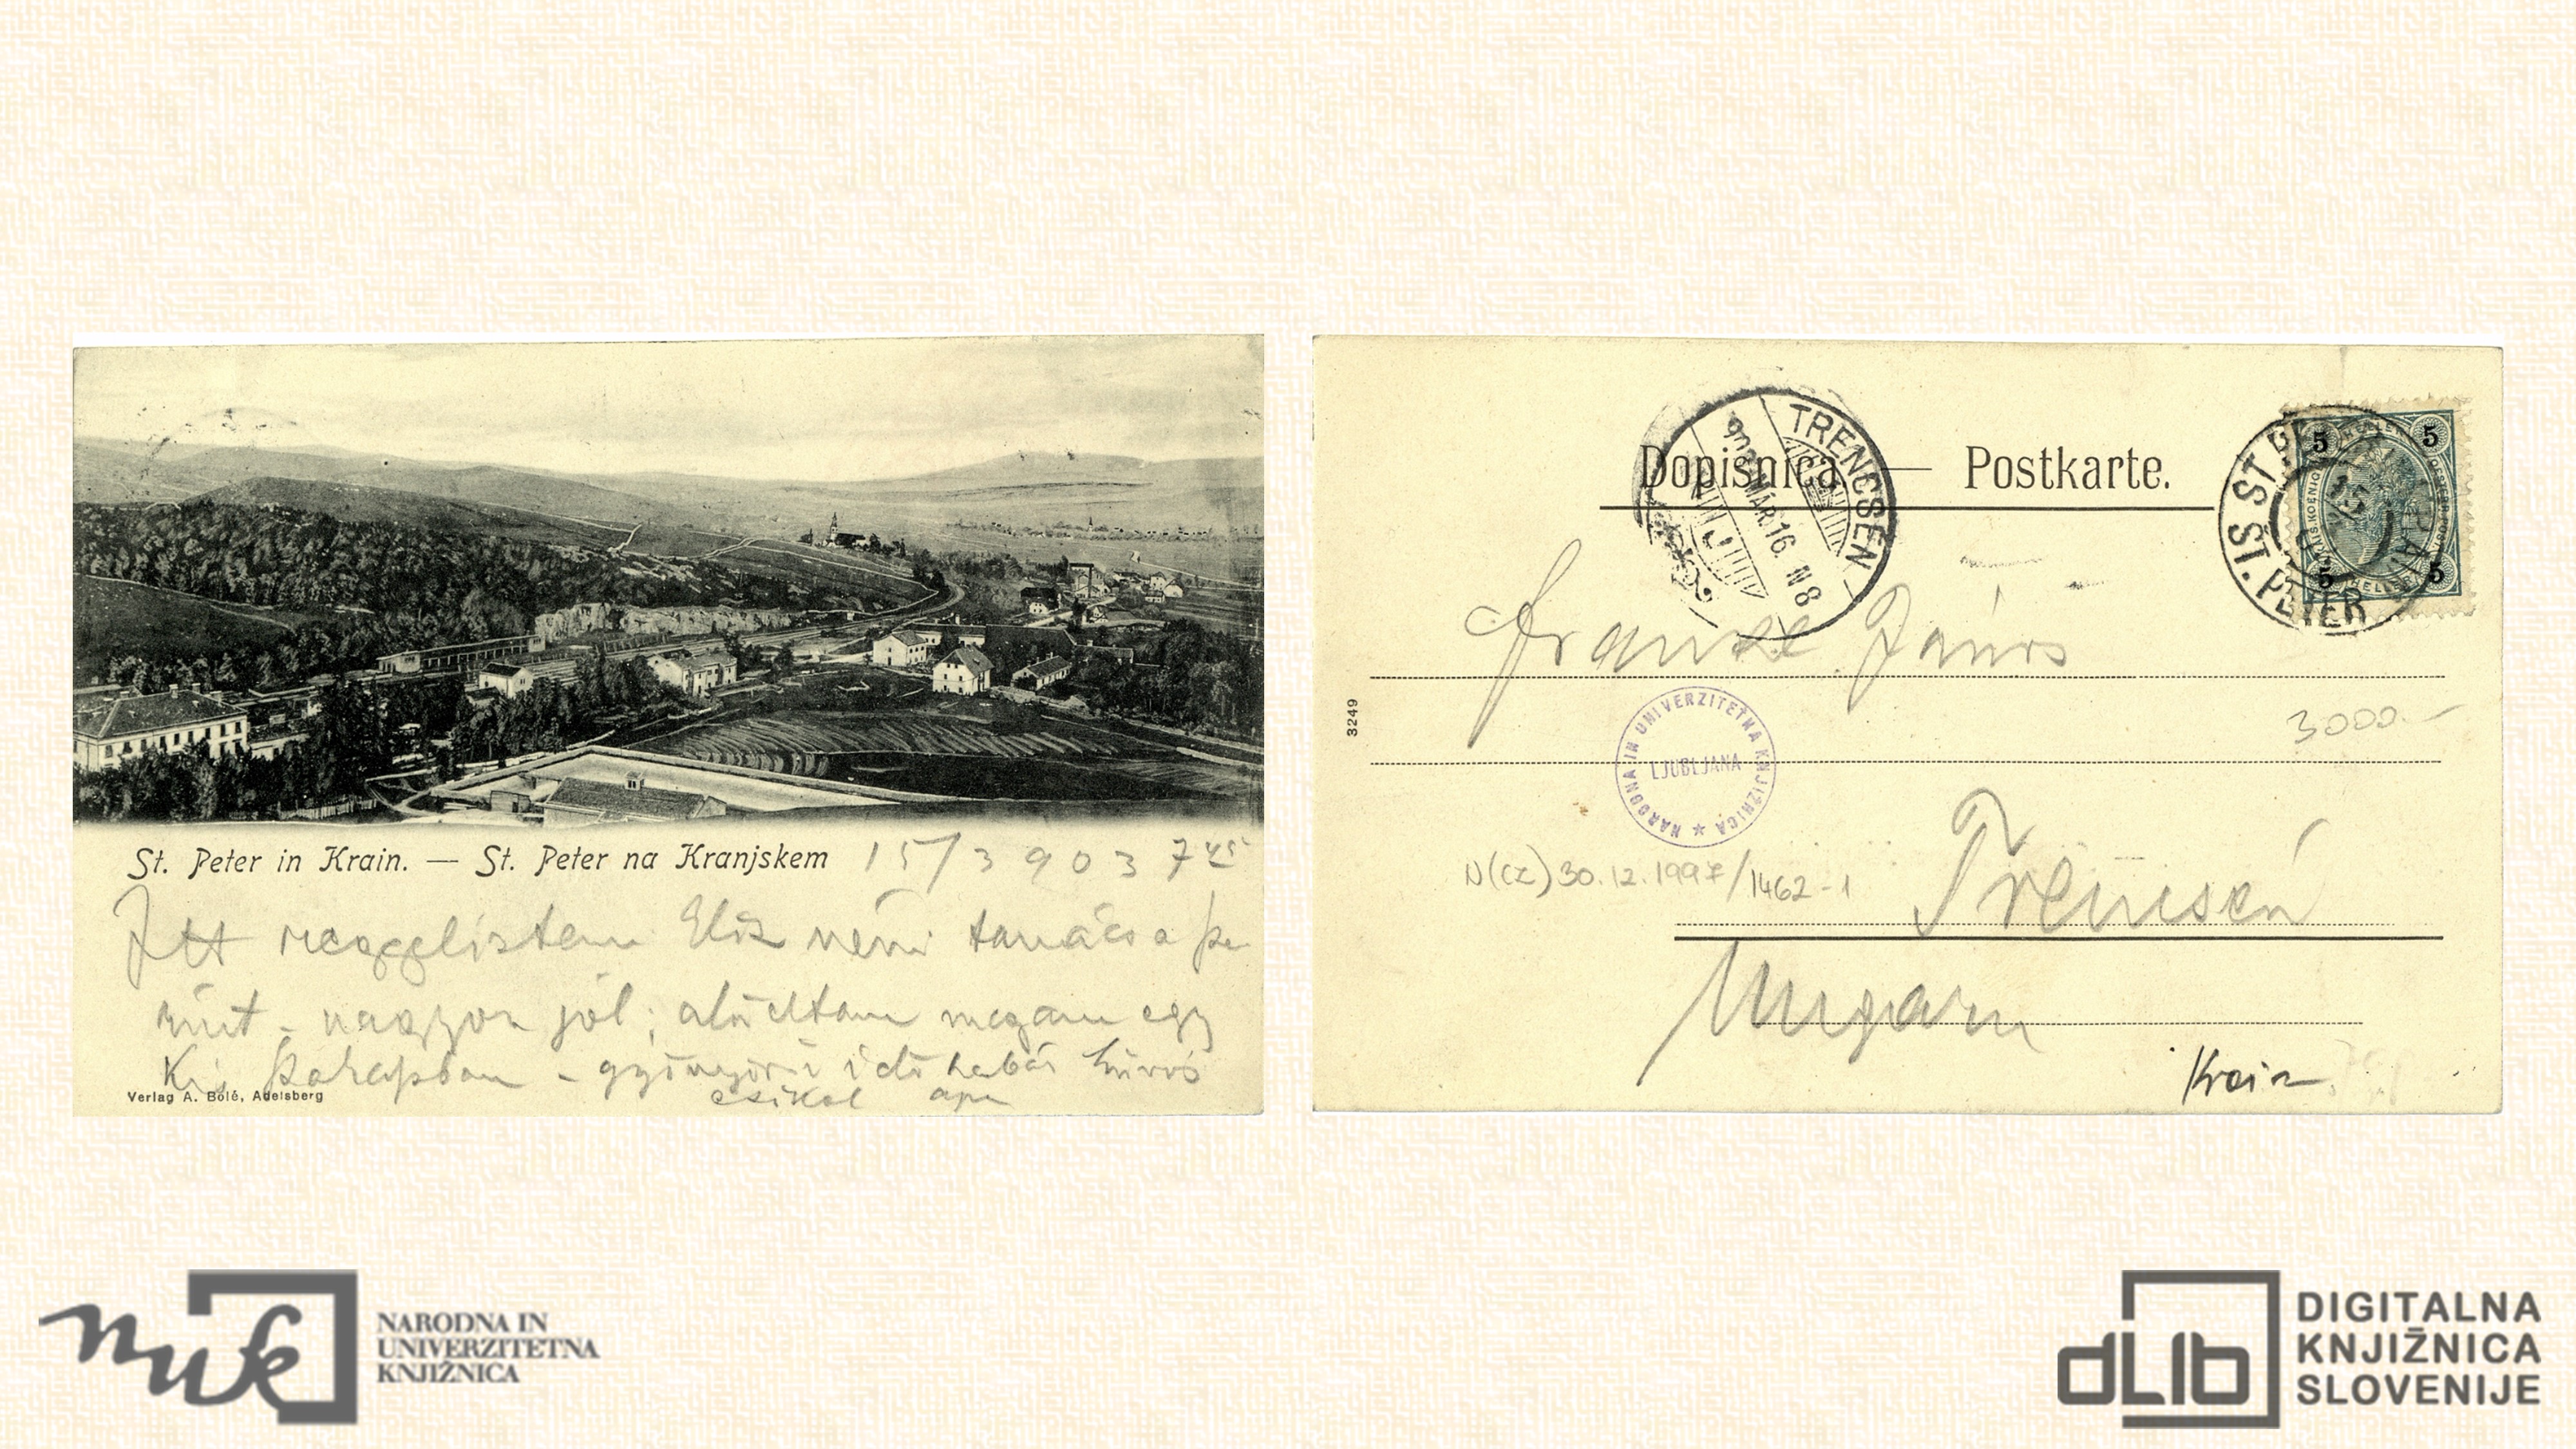 St. Peter in Krain. — St. Peter na Kranjskem 15/3 903 7 45
Itt reggeliztem Eliz néni tanácsa sze
rint - nagyon jól; aludtam magam egy
kis - gyönyörű idő habár hűvös
csókol apa
Verlag A. Bolé, Adelsberg
Dopisnica — Postkarte.
TRENCSÉN
903 MÁR 16. N 8
ST. PETER
5 HELLER 5
5 HELLER 5
János
3249
NARODNA IN UNIVERZITETNA KNJIŽNICA
LJUBLJANA
3000.-
N(CZ) 30.12.1997/1462-1
Trencsén
Ungarn
Krain
nuk
NARODNA IN
UNIVERZITETNA
KNJIŽNICA
dLib
DIGITALNA
KNJIŽNICA
SLOVENIJE